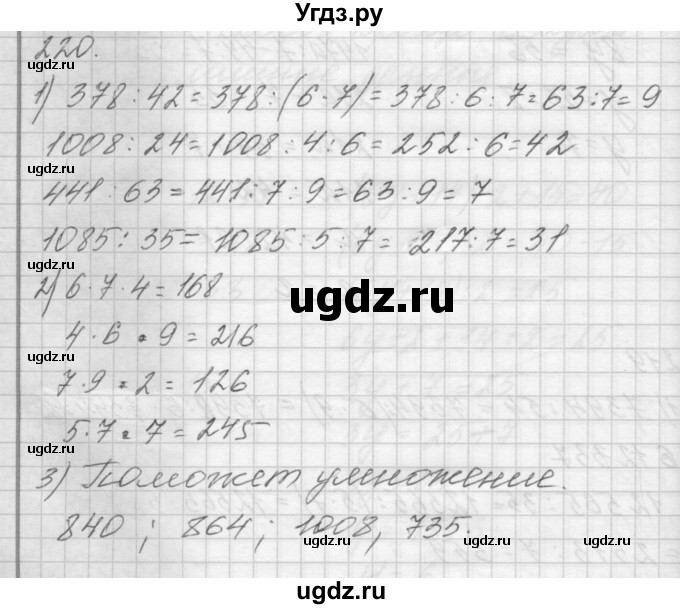 Угдз.ру
220.
ugdz.ru ugdz.ru ugdz.ru
1) 378 : 42 = 378 : (6 · 7) = 378 : 6 : 7 = 63 : 7 = 9
1008 : 24 = 1008 : 4 : 6 = 252 : 6 = 42
ugdz.ru
441 : 63 = 441 : 7 : 9 = 63 : 9 = 7
1085 : 35 = 1085 : 5 : 7 = 217 : 7 = 31
ugdz.ru
2) 6 · 7 · 4 = 168
ugdz.ru
4 · 6 · 9 = 216
ugdz.ru
7 · 9 · 2 = 126
5 · 7 · 7 = 245
ugdz.ru
3) Поможет умножение.
840 ; 864 ; 1008, 735.
ugdz.ru ugdz.ru
ugdz.ru